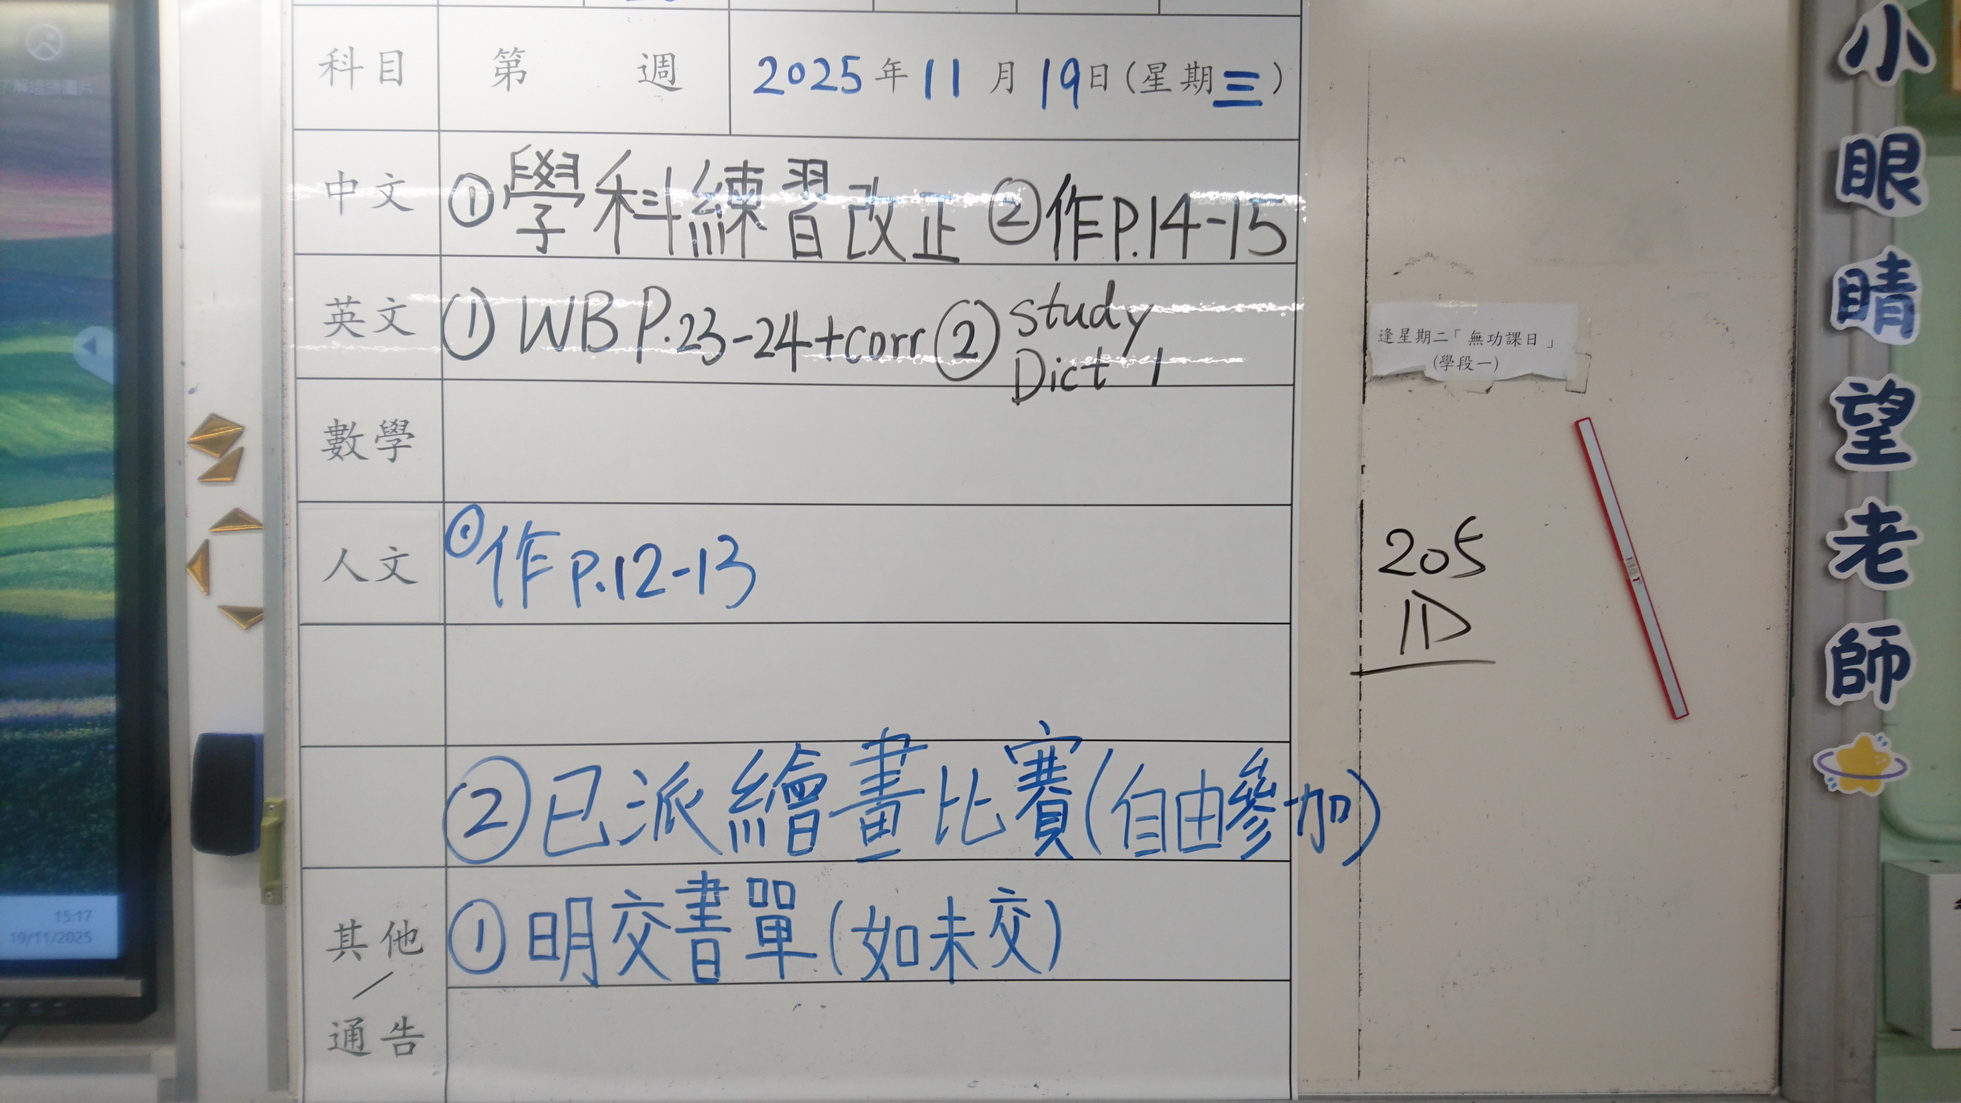 科目 第 週 2025年11月19日(星期三)
中文 ①學科練習改正 ②作P.14-15
英文 ① WB P.23-24+corr ② study
Dict 1
數學
人文 ①作P.12-13
②已派繪畫比賽(自由參加)
其他 ①明交書單(如未交)
/
通告
逢星期二「無功課日」
(學段一)
205
1D
小眼睛望老師
15:17
19/11/2025